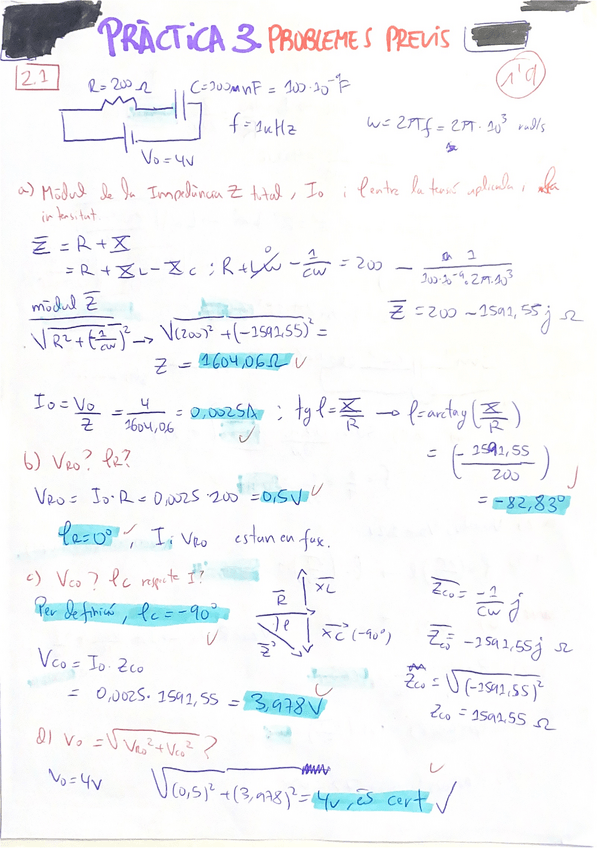 PRÀCTICA 3. PROBLEMES PREVIS
2.1
1'9
R=200Ω C=100nF = 100·10^-9 F
f=1kHz w=2πf=2π·10^3 rad/s
V0=4V
a) Mòdul de la Impedància Z total, I0 i φ entre la tensió aplicada i la
intensitat.
Z = R+X
= R + XL - XC ; R+Lw - 1/cw = 200 - 1/100·10^-9·2π·10^3
mòdul Z
Z = 200 - 1591,55j Ω
√R²+(-1/cw)² → √(200)²+(-1591,55)² =
Z = 1604,06Ω ✓
I0 = V0/Z = 4/1604,06 = 0,0025A ; tgφ = X/R → φ=arctag(X/R)
= (-1591,55/200)
= -82,83°
b) VR0? φR?
VR0 = I0·R = 0,0025·200 = 0,5V ✓
φR=0° ✓, I i VR0 estan en fase.
c) VC0? φC respecte I?
Per definició, φC=-90°
R XL
φ
Z XC (-90°)
ZC0 = -1/cw j
ZC0 = -1591,55j Ω
ZC0 = √(-1591,55)²
ZC0 = 1591,55 Ω
VC0 = I0·ZC0
= 0,0025·1591,55 = 3,978V
d) V0 = √VR0²+VC0² ?
V0=4V √(0,5)²+(3,978)² = 4V, és cert ✓